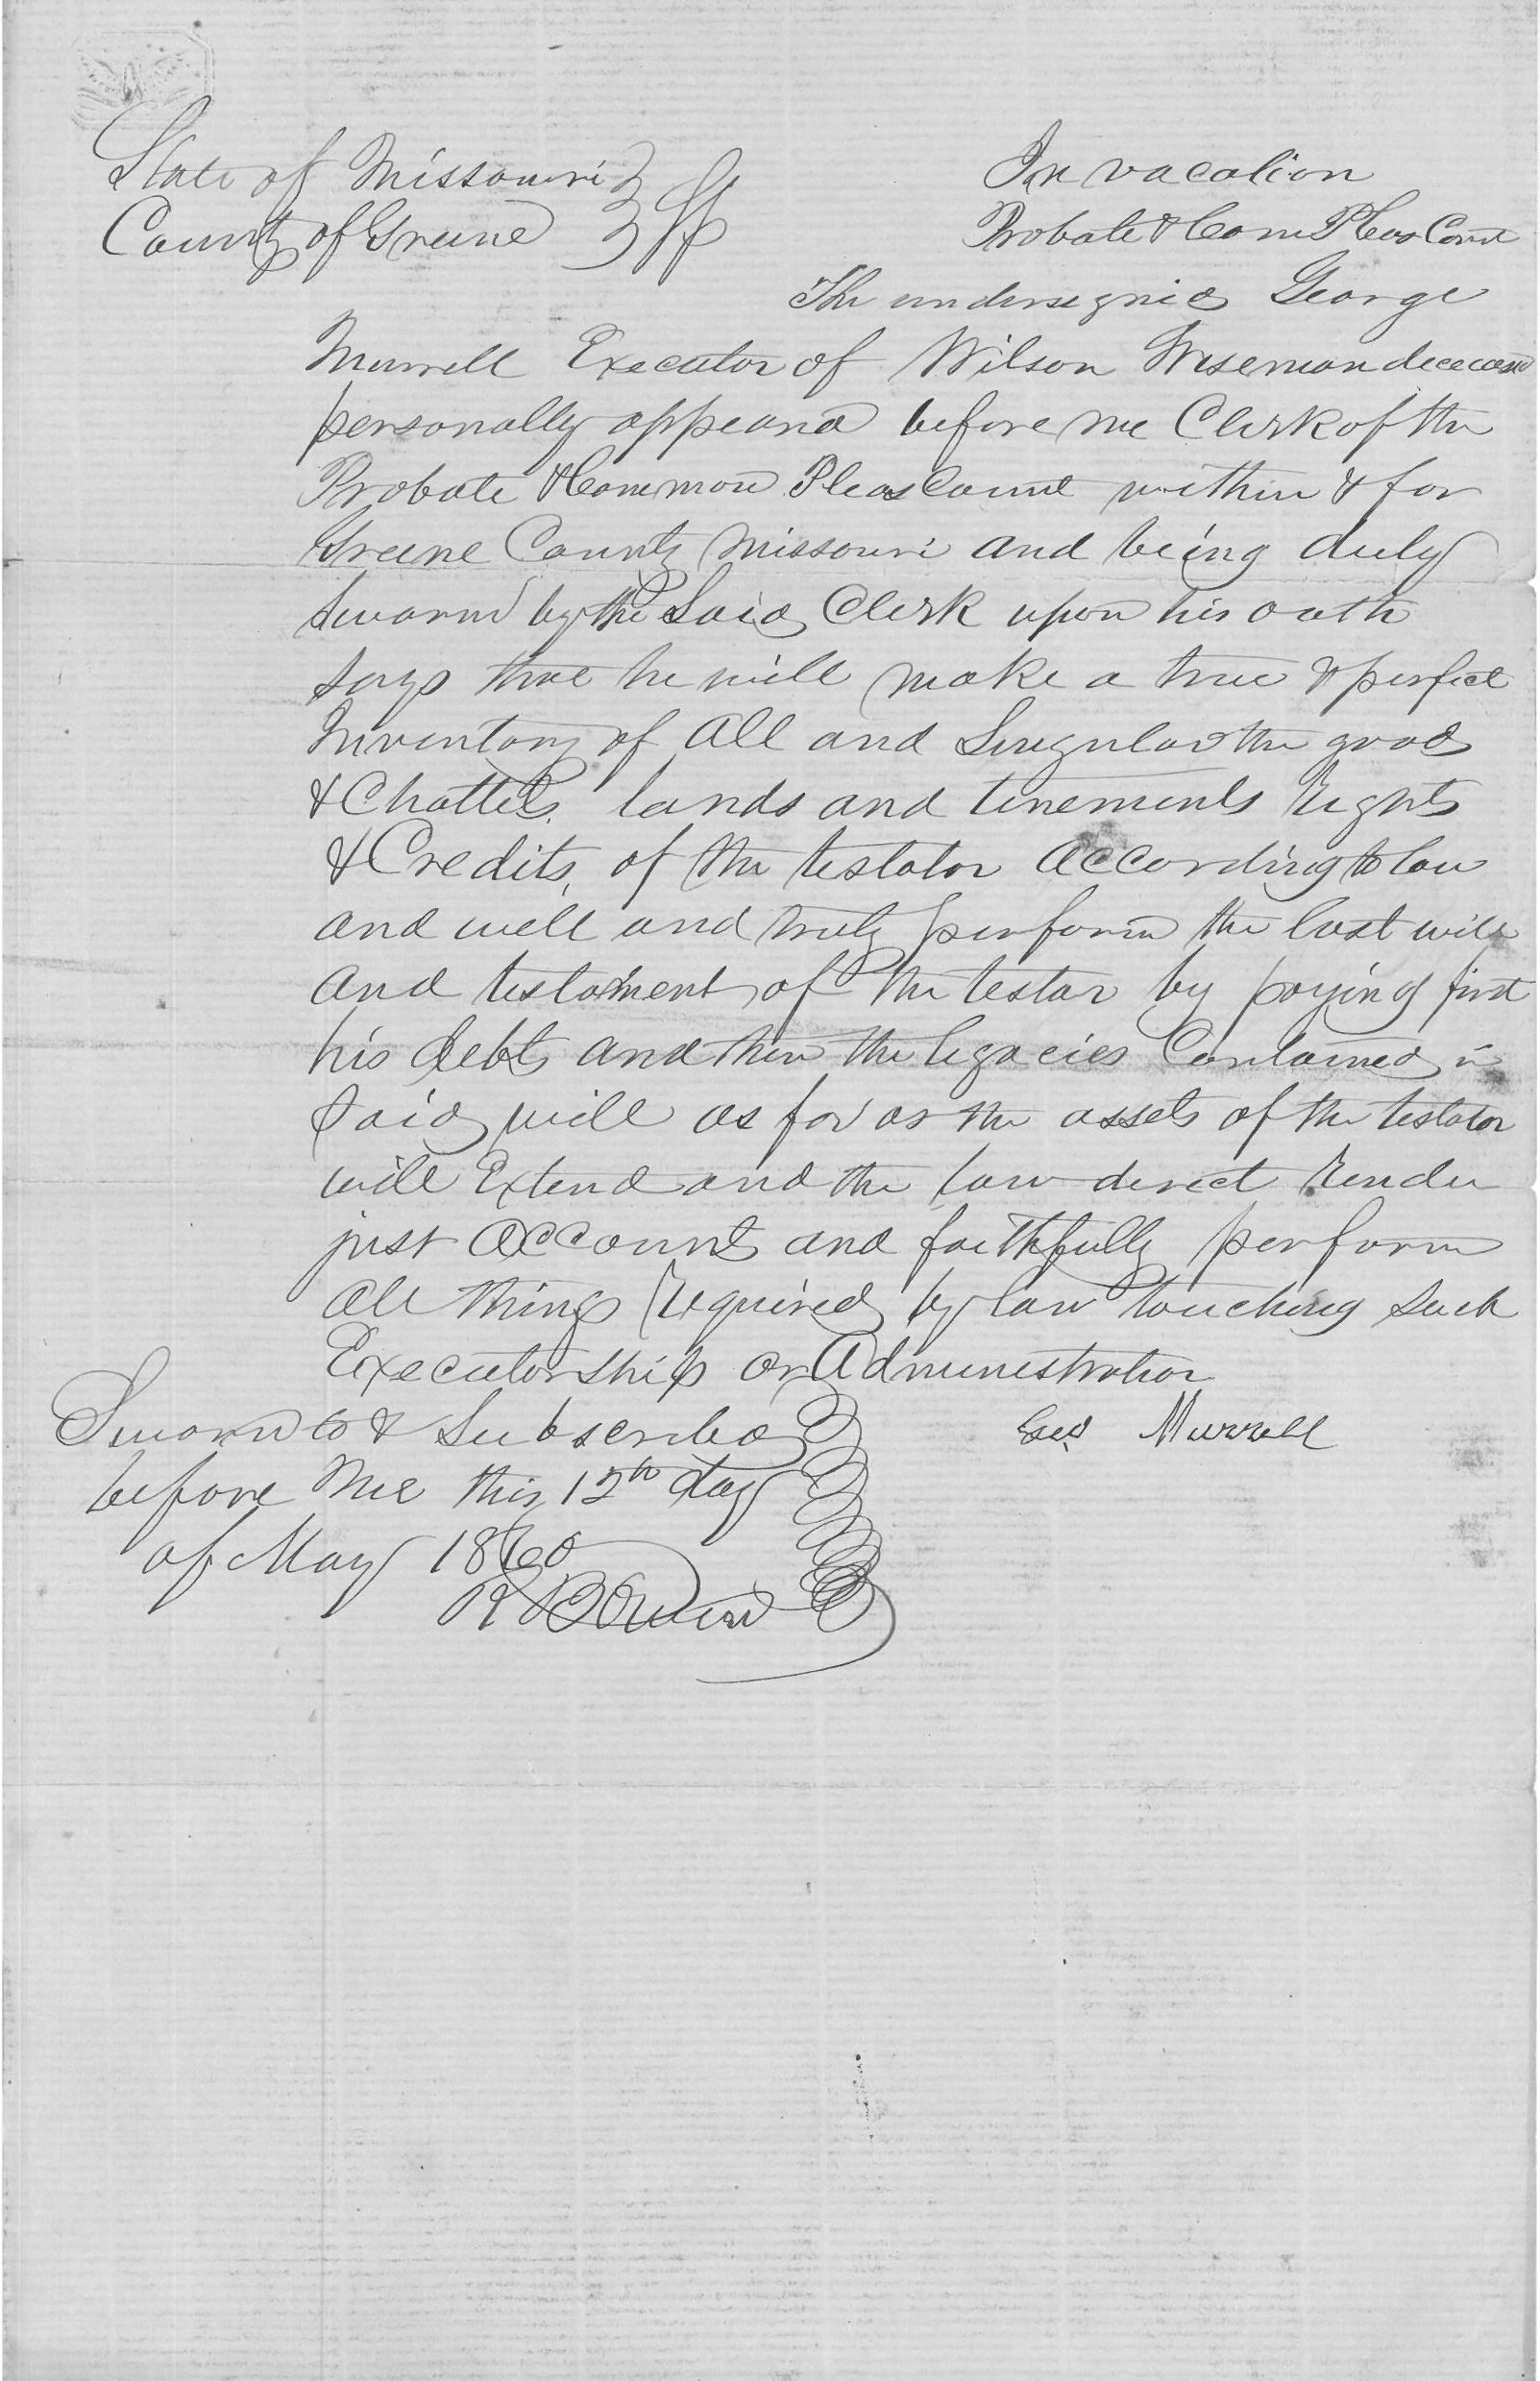 State of Missouri } ss
County of Greene }
In vacation
Probate & Com Pleas Court
The undersigned George
Murrell Executor of Wilson Wiseman deceased
personally appeard before me Clerk of the
Probate & Common Pleas Court within & for
Greene County Missouri and being duly
sworn by the Said Clerk upon his oath
says that he will make a true & perfect
Inventory of All and Singular the goods
& Chattels, lands and tenements Rights
& Credits, of the testator According to law
and well and truly perform the last will
and testament of the testar by paying first
his debts and then the legacies Contained in
Said will as far as the assets of the testator
will Extend and the law direct Render
just Accounts and faithfully perform
all things Required by law touching such
Executorship or Administration
Geo Murrell
Sworn to & Subscribed
before me this 12th day
of May 1860